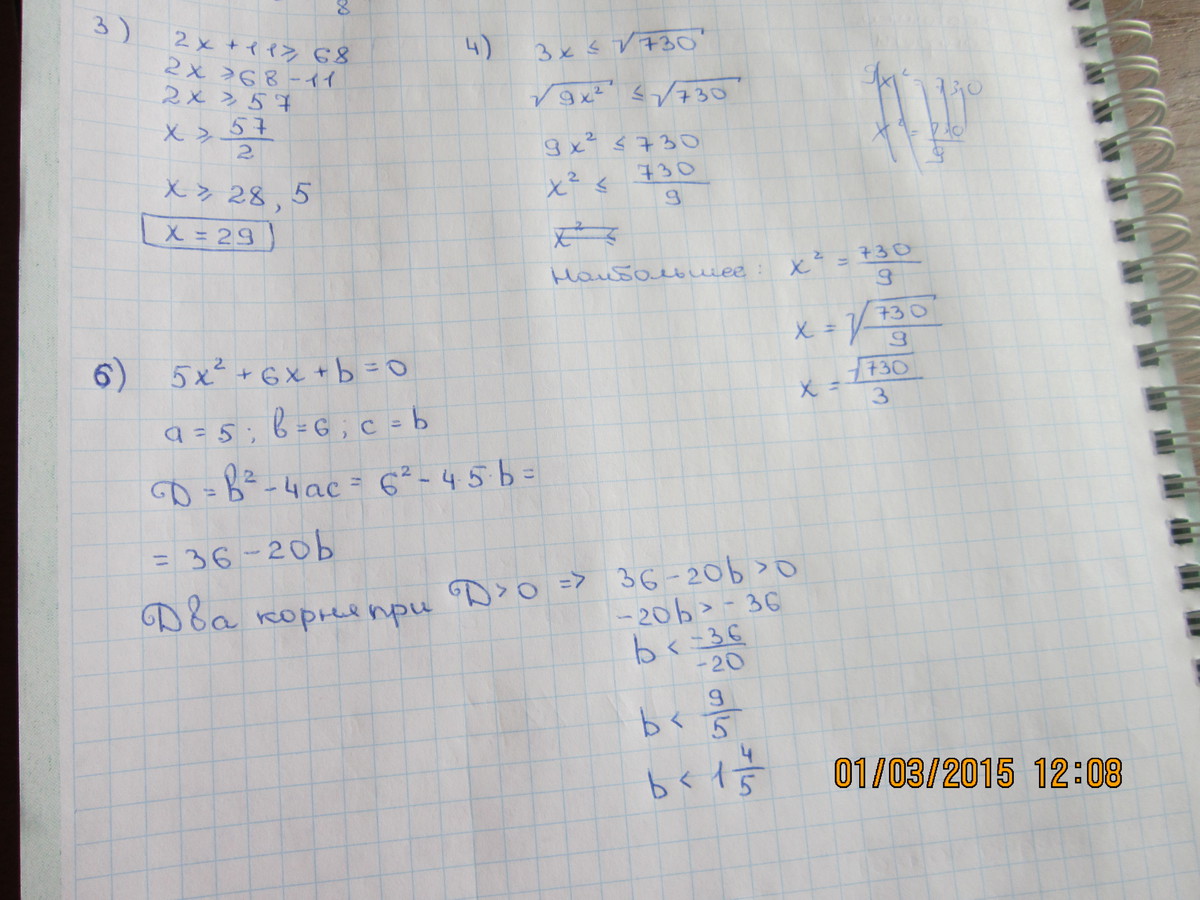 8
3)
2x + 11 ≥ 68
2x ≥ 68 - 11
2x ≥ 57
x ≥ 57/2
x ≥ 28,5
x = 29
4)
3x ≤ √730
√9x² ≤ √730
9x² ≤ 730
x² ≤ 730/9
x² ≤
Наибольшее: x² = 730/9
x = √(730/9)
x = √730/3
9x² = 730
x² = 730/9
6)
5x² + 6x + b = 0
a = 5; в = 6; c = b
D = в² - 4ac = 6² - 4·5·b =
= 36 - 20b
Два корня при D > 0 => 36 - 20b > 0
-20b > -36
b < -36/-20
b < 9/5
b < 1 4/5
01/03/2015 12:08